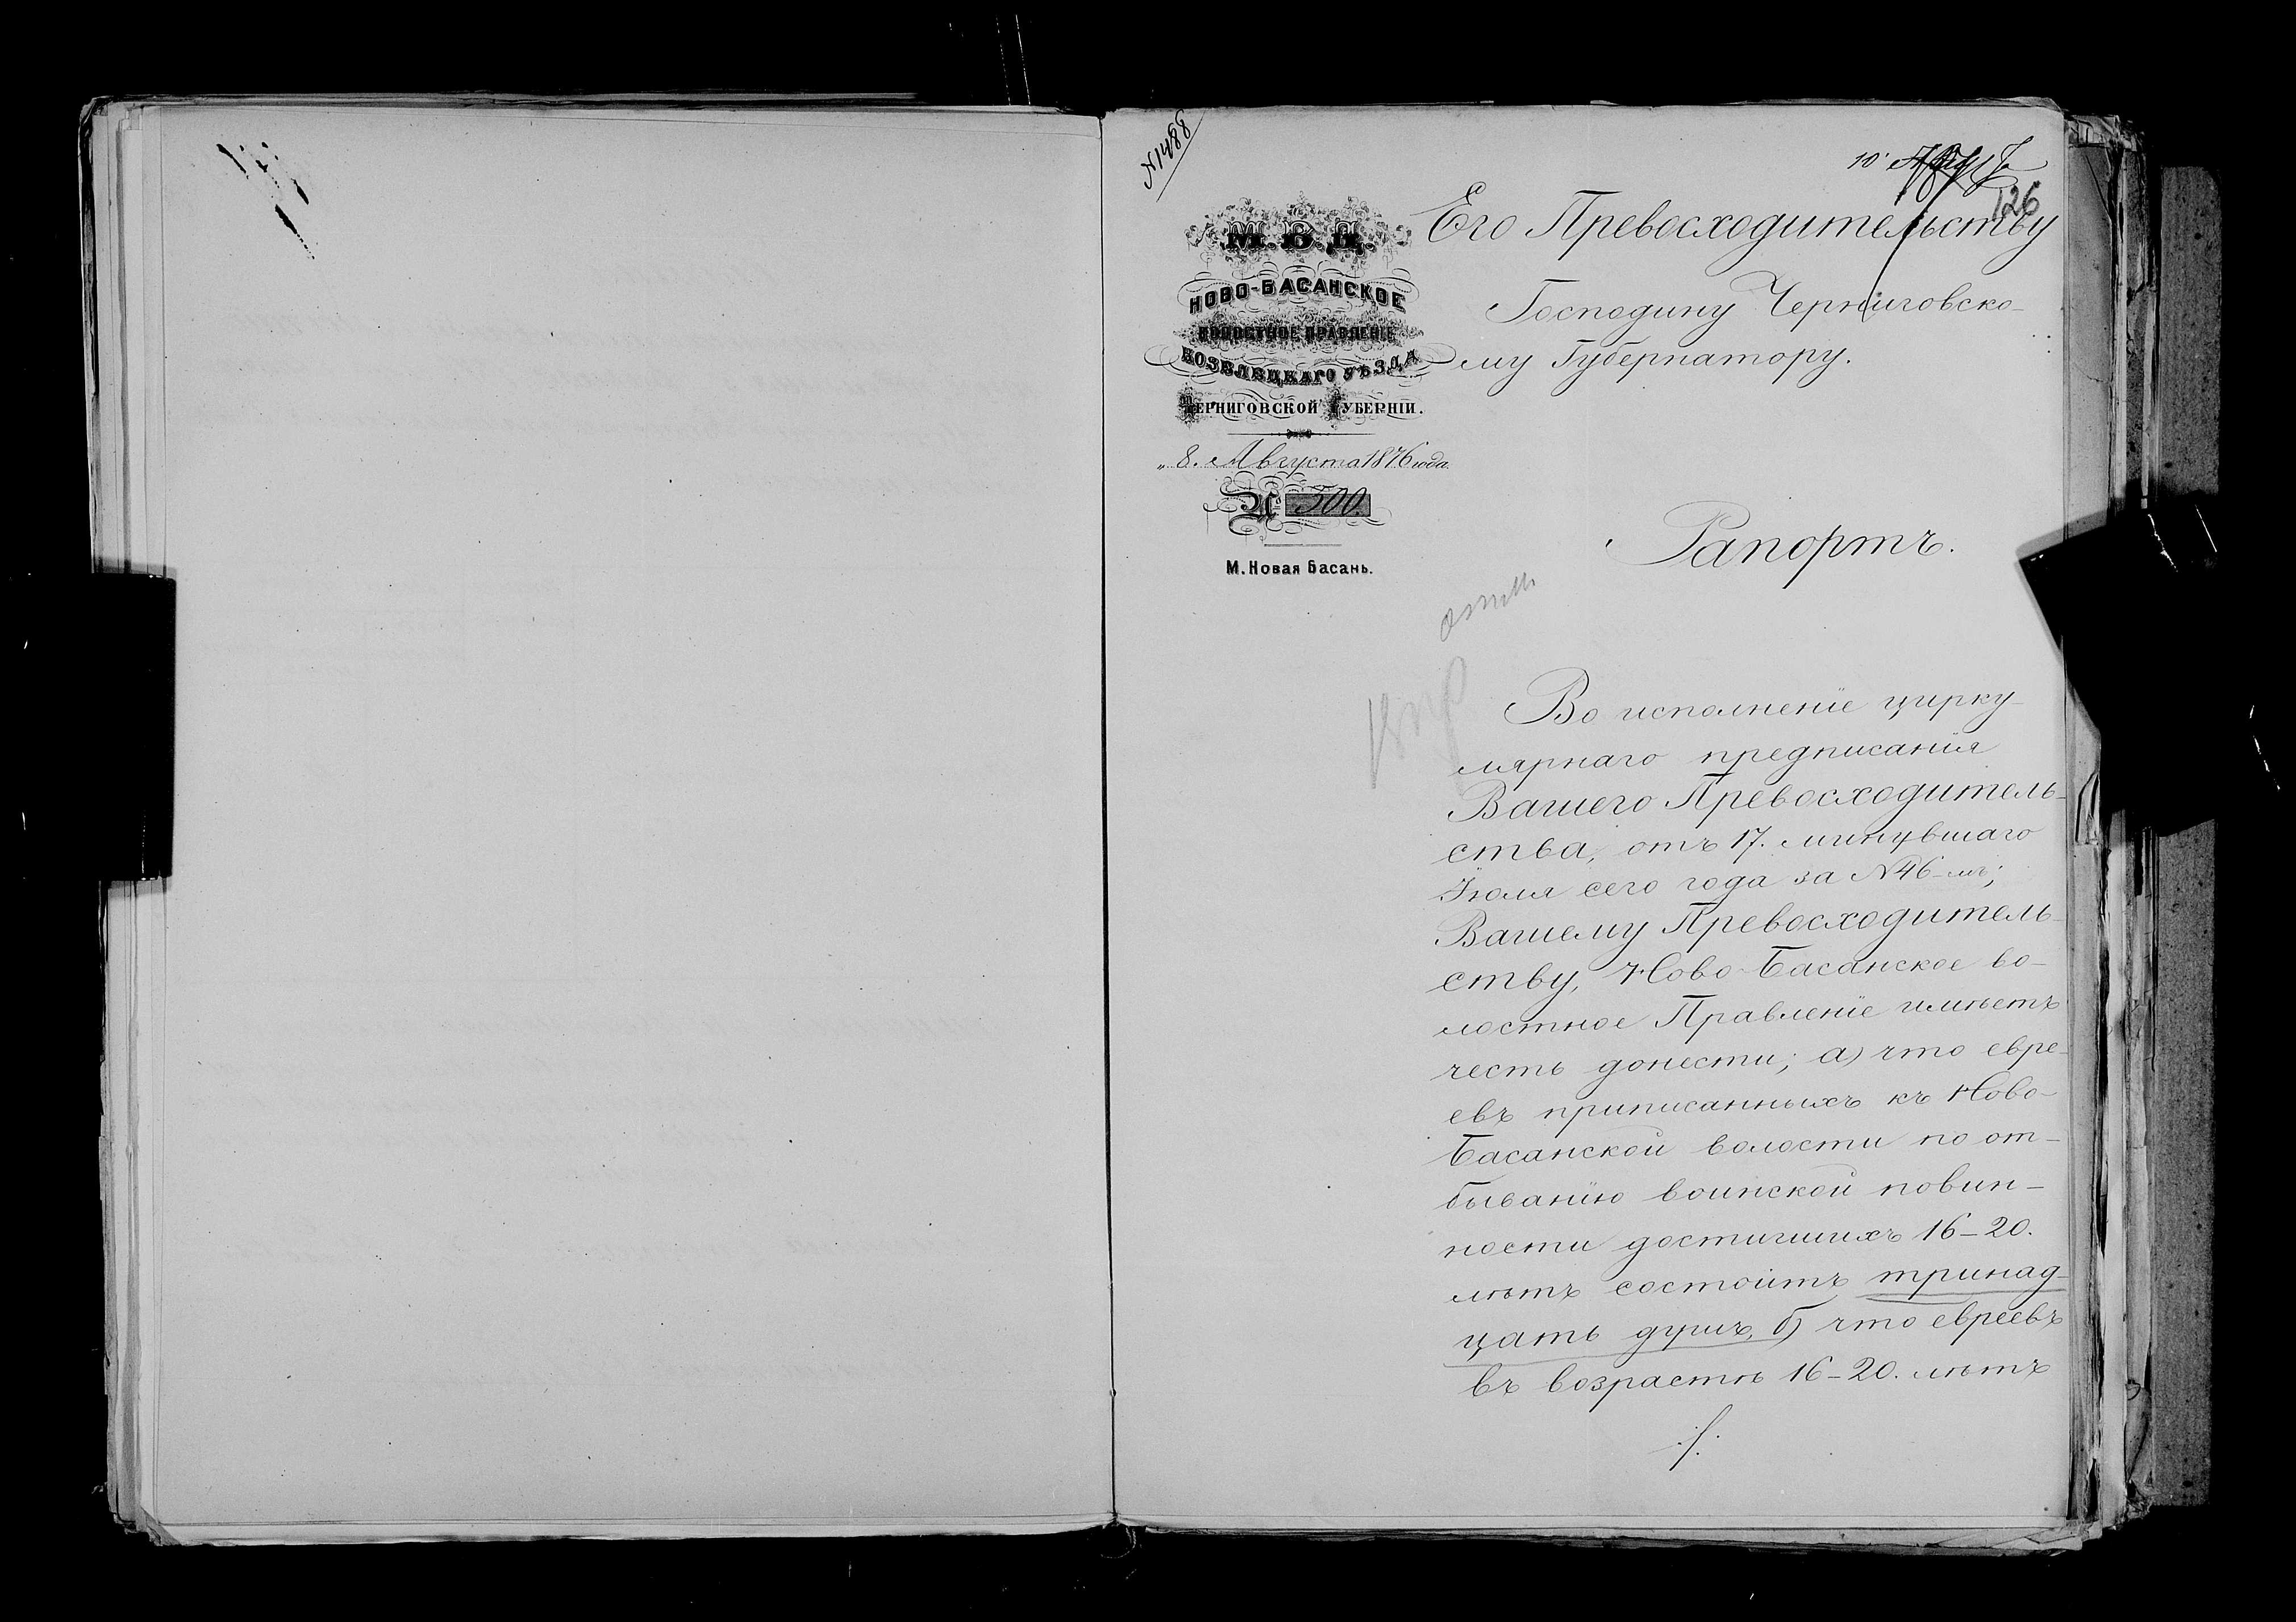 №1488
126
М. В. Д.
НОВО-БАСАНСКОЕ
ВОЛОСТНОЕ ПРАВЛЕНІЕ
КОЗЕЛЕЦКАГО УѢЗДА
ЧЕРНИГОВСКОЙ ГУБЕРНІИ.
„ 8. Августа 1876 года
№ 500.
М. Новая Басань.
Его Превосходительству
Господину Черниговско-
му Губернатору.
Рапортъ.
Во исполненіе цирку-
лярнаго предписанія
Вашего Превосходитель-
ства, отъ 17. минувшаго
Іюля сего года за №46-мъ;
Вашему Превосходитель-
ству, Ново-Басанское во-
лостное Правленіе имѣетъ
честь донести; а) что евре-
евъ приписанныхъ къ Ново-
Басанской волости по от-
быванію воинской повин-
ности достигшихъ 16-20.
лѣтъ состоитъ тринад-
цать душъ, б) что евреевъ
въ возрастѣ 16-20. лѣтъ
./.